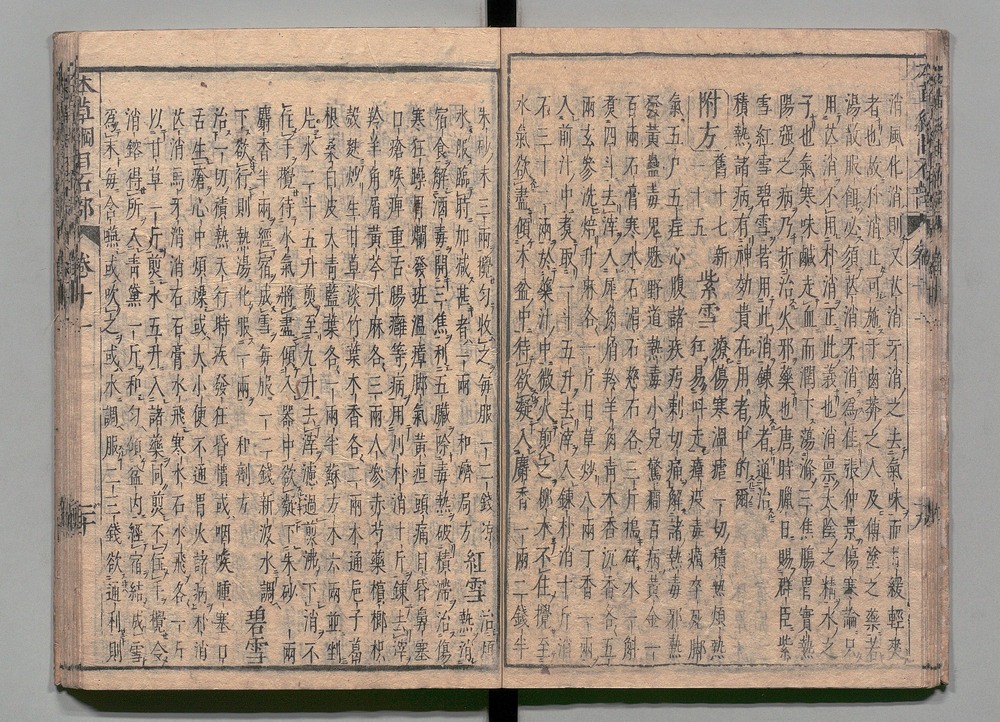 消風化消則又以消牙消之去氣味而甘緩輕爽
者也故朴消止可施于鹵莽之人及傅塗之藥若
湯散服餌必須芒消牙消爲佳張仲景傷寒論只
用芒消不用朴消正此義也消稟太陰之精水之
子也氣寒味鹹走血而潤下蕩滌三焦腸胃實熱
陽强之病乃折治火邪藥也唐時臘日賜群臣紫
雪紅雪碧雪皆用此消鍊成者通治
積熱諸病有神効貴在用者中的爾
附方
舊十七新
一十五
紫雪
療傷寒溫瘧一切積熱煩熱
狂易叫走瘴疫毒癘卒死脚
氣五尸五疰心腹諸疾㽲刺切痛解諸熱毒邪熱
發黃蠱毒鬼魅野道熱毒小兒驚癇百病黃金一
百兩石膏寒水石滑石慈石各三斤擣碎水一斛
煮四斗去滓入犀角屑羚羊角青木香沉香各五
兩玄參洗焙升麻各一斤甘草炒八兩丁香一兩
入前汁中煮取一斗五升去滓入鍊朴消十斤消
石三十二兩於藥汁中微火煎之柳木不住攪至
水氣欲盡傾木盆中待欲凝入麝香一兩二錢半
朱砂末三兩攪匀收之每服一二錢凉
水服臨時加減甚者一兩 和濟局方
紅雪
治煩
熱消
宿食解酒毒開三焦利五臟除毒熱破積滯治傷
寒狂躁胃爛發班溫瘴脚氣黃疸頭痛目昏鼻塞
口瘡喉痺重舌腸癰等病用川朴消十斤鍊去滓
羚羊角屑黃芩升麻各三兩人參赤芍藥檳榔枳
殼麩炒生甘草淡竹葉木香各二兩木通巵子葛
根桑白皮大青藍葉各一兩半蘇方木六兩並剉
片水二斗五升煎至九升去滓濾過煎沸下消不
住手攪待水氣將盡傾入器中欲凝下朱砂一兩
麝香半兩經宿成雪每服一二錢新汲水調
下欲行則熱湯化服一兩 和劑方
碧雪
治一切積熱天行時疾發狂昏憒或咽喉腫塞口
舌生瘡心中煩燥或大小便不通胃火諸病朴消
芒消馬牙消消石石膏水飛寒水石水飛各一斤
以甘草一斤煎水五升入諸藥同煎不住手攪令
消鎔得所入青黛一斤和匀傾盆內經宿結成雪
爲末每含嚥或吹之或水調服二三錢欲通利則
本草綱目石部 卷十一